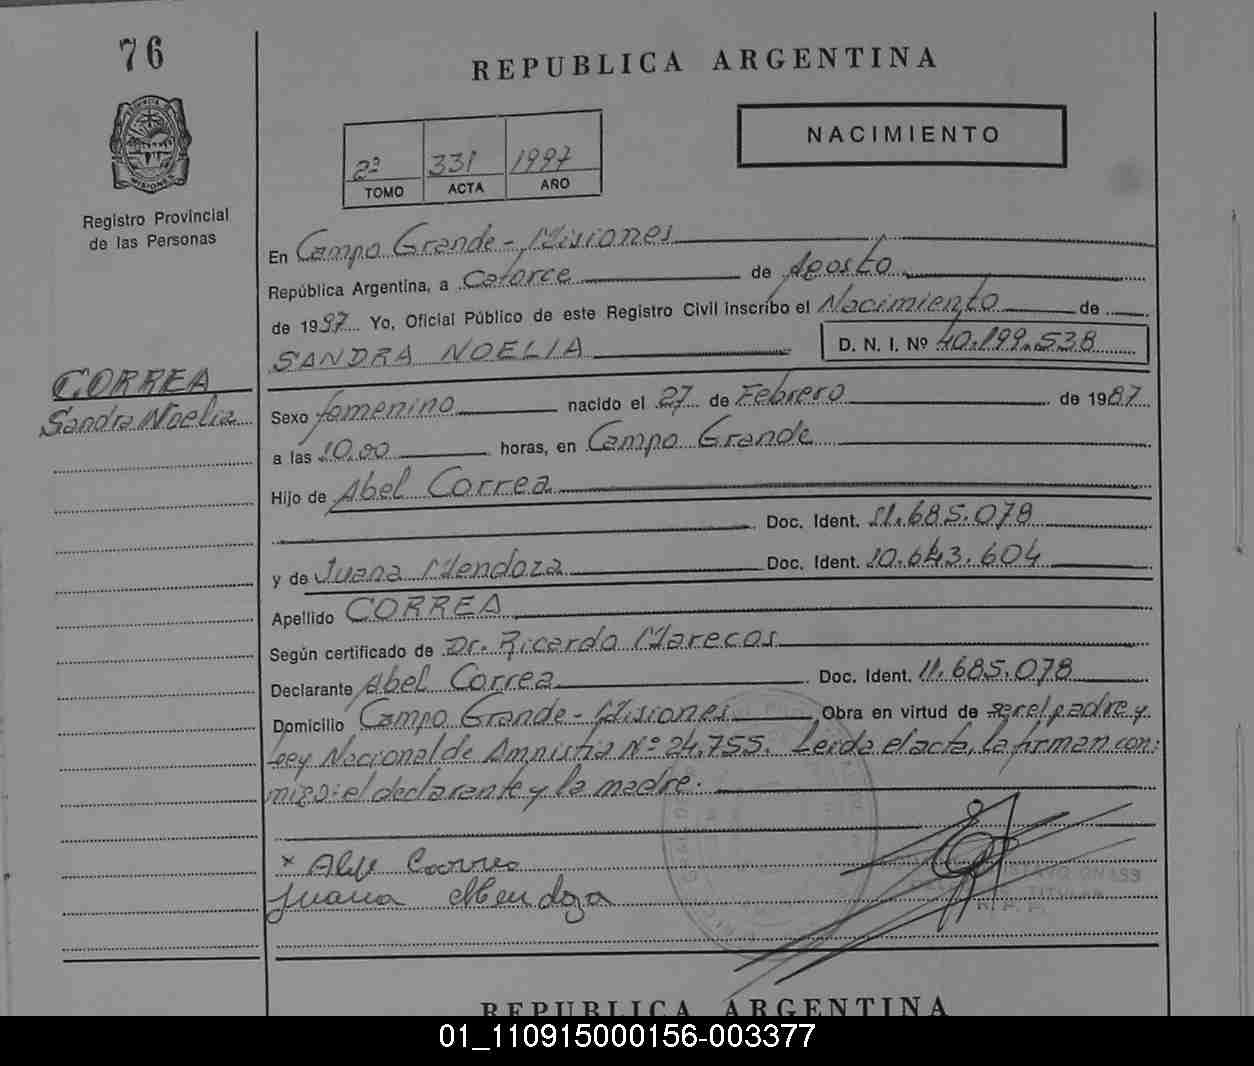 76
REPUBLICA ARGENTINA
NACIMIENTO
2º 331 1997
TOMO ACTA AÑO
MISIONES
Registro Provincial
de las Personas
En Campo Grande - Misiones
República Argentina, a Catorce de Agosto
de 1997 Yo, Oficial Público de este Registro Civil inscribo el Nacimiento de
SANDRA NOELIA D. N. I. Nº 40.199.538
CORREA
Sandra Noelia
Sexo femenino nacido el 27 de Febrero de 1987
a las 10.00 horas, en Campo Grande
Hijo de Abel Correa
Doc. Ident. 11.685.078
y de Juana Mendoza Doc. Ident. 10.643.604
Apellido CORREA
Según certificado de Dr. Ricardo Marecos
Declarante Abel Correa Doc. Ident. 11.685.078
Domicilio Campo Grande - Misiones Obra en virtud de ser el padre y
Ley Nacional de Amnistía Nº 24.755. Leída el acta, la firman con-
migo: el declarante y la madre.
x
Juana Mendoza
GUSTAVO
TITULAR
R. P. P.
REPUBLICA ARGENTINA
01_110915000156-003377